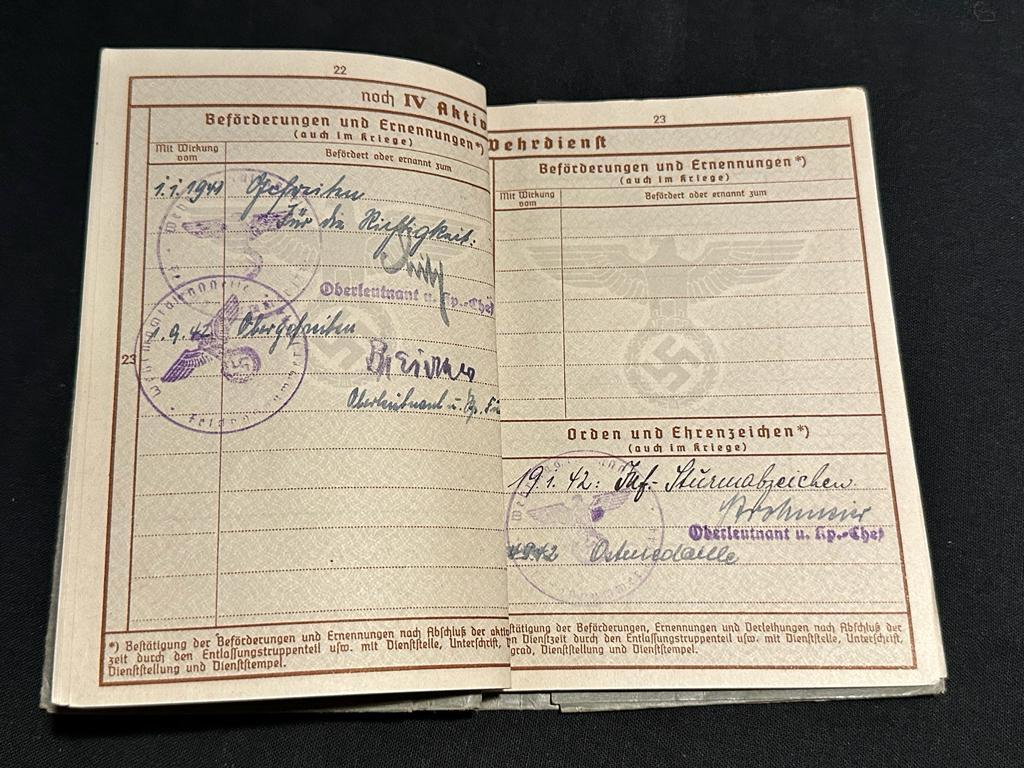 22
noch IV Akti
Beförderungen und Ernennungen*)
(auch im Kriege)
Mit Wirkung vom
Befördert oder ernannt zum
1.1.1941 Gefreiten
Für die Richtigkeit:
Oberleutnant u. Kp.-Chef
1.9.42 Obergefreiten
23
Oberleutnant u. Kp.
*) Bestätigung der Beförderungen und Ernennungen nach Abschluß der akti
zeit durch den Entlassungstruppenteil usw. mit Dienststelle, Unterschrift,
Dienststellung und Dienststempel.
23
Wehrdienst
Beförderungen und Ernennungen*)
(auch im Kriege)
Mit Wirkung vom
Befördert oder ernannt zum
Orden und Ehrenzeichen*)
(auch im Kriege)
19.1.42: Inf.-Sturmabzeichen.
Oberleutnant u. Kp.-Chef
Ostmedaille
stätigung der Beförderungen, Ernennungen und Verleihungen nach Abschluß der
en Dienstzeit durch den Entlassungstruppenteil usw. mit Dienststelle, Unterschrift,
grad, Dienststellung und Dienststempel.